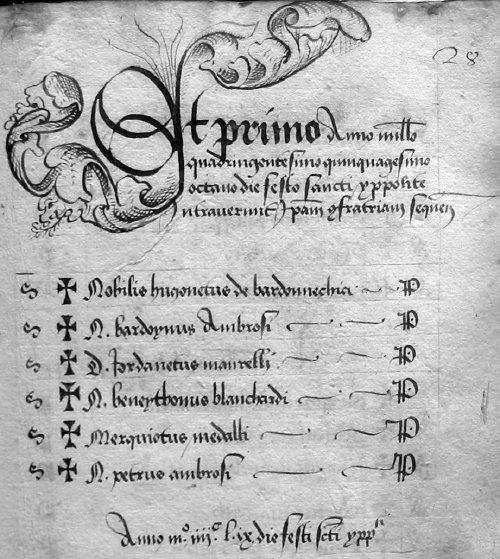 28
Et primo Anno millo
quadringentesimo quinquagesimo
octavo die festo sancti yppolite
intraverunt ipam confratriam sequen
S ✠ Nobilis hugonetus de bardonnechia P
S ✠ N. bardoynus Ambrosi P
S ✠ D. Jordanetus maurelli P
S ✠ N. beneythonus blanchardi P
S ✠ Merquiotus medalli P
S ✠ N. petrus ambrosi P
Anno mo iiiic lix die festi scti ypp